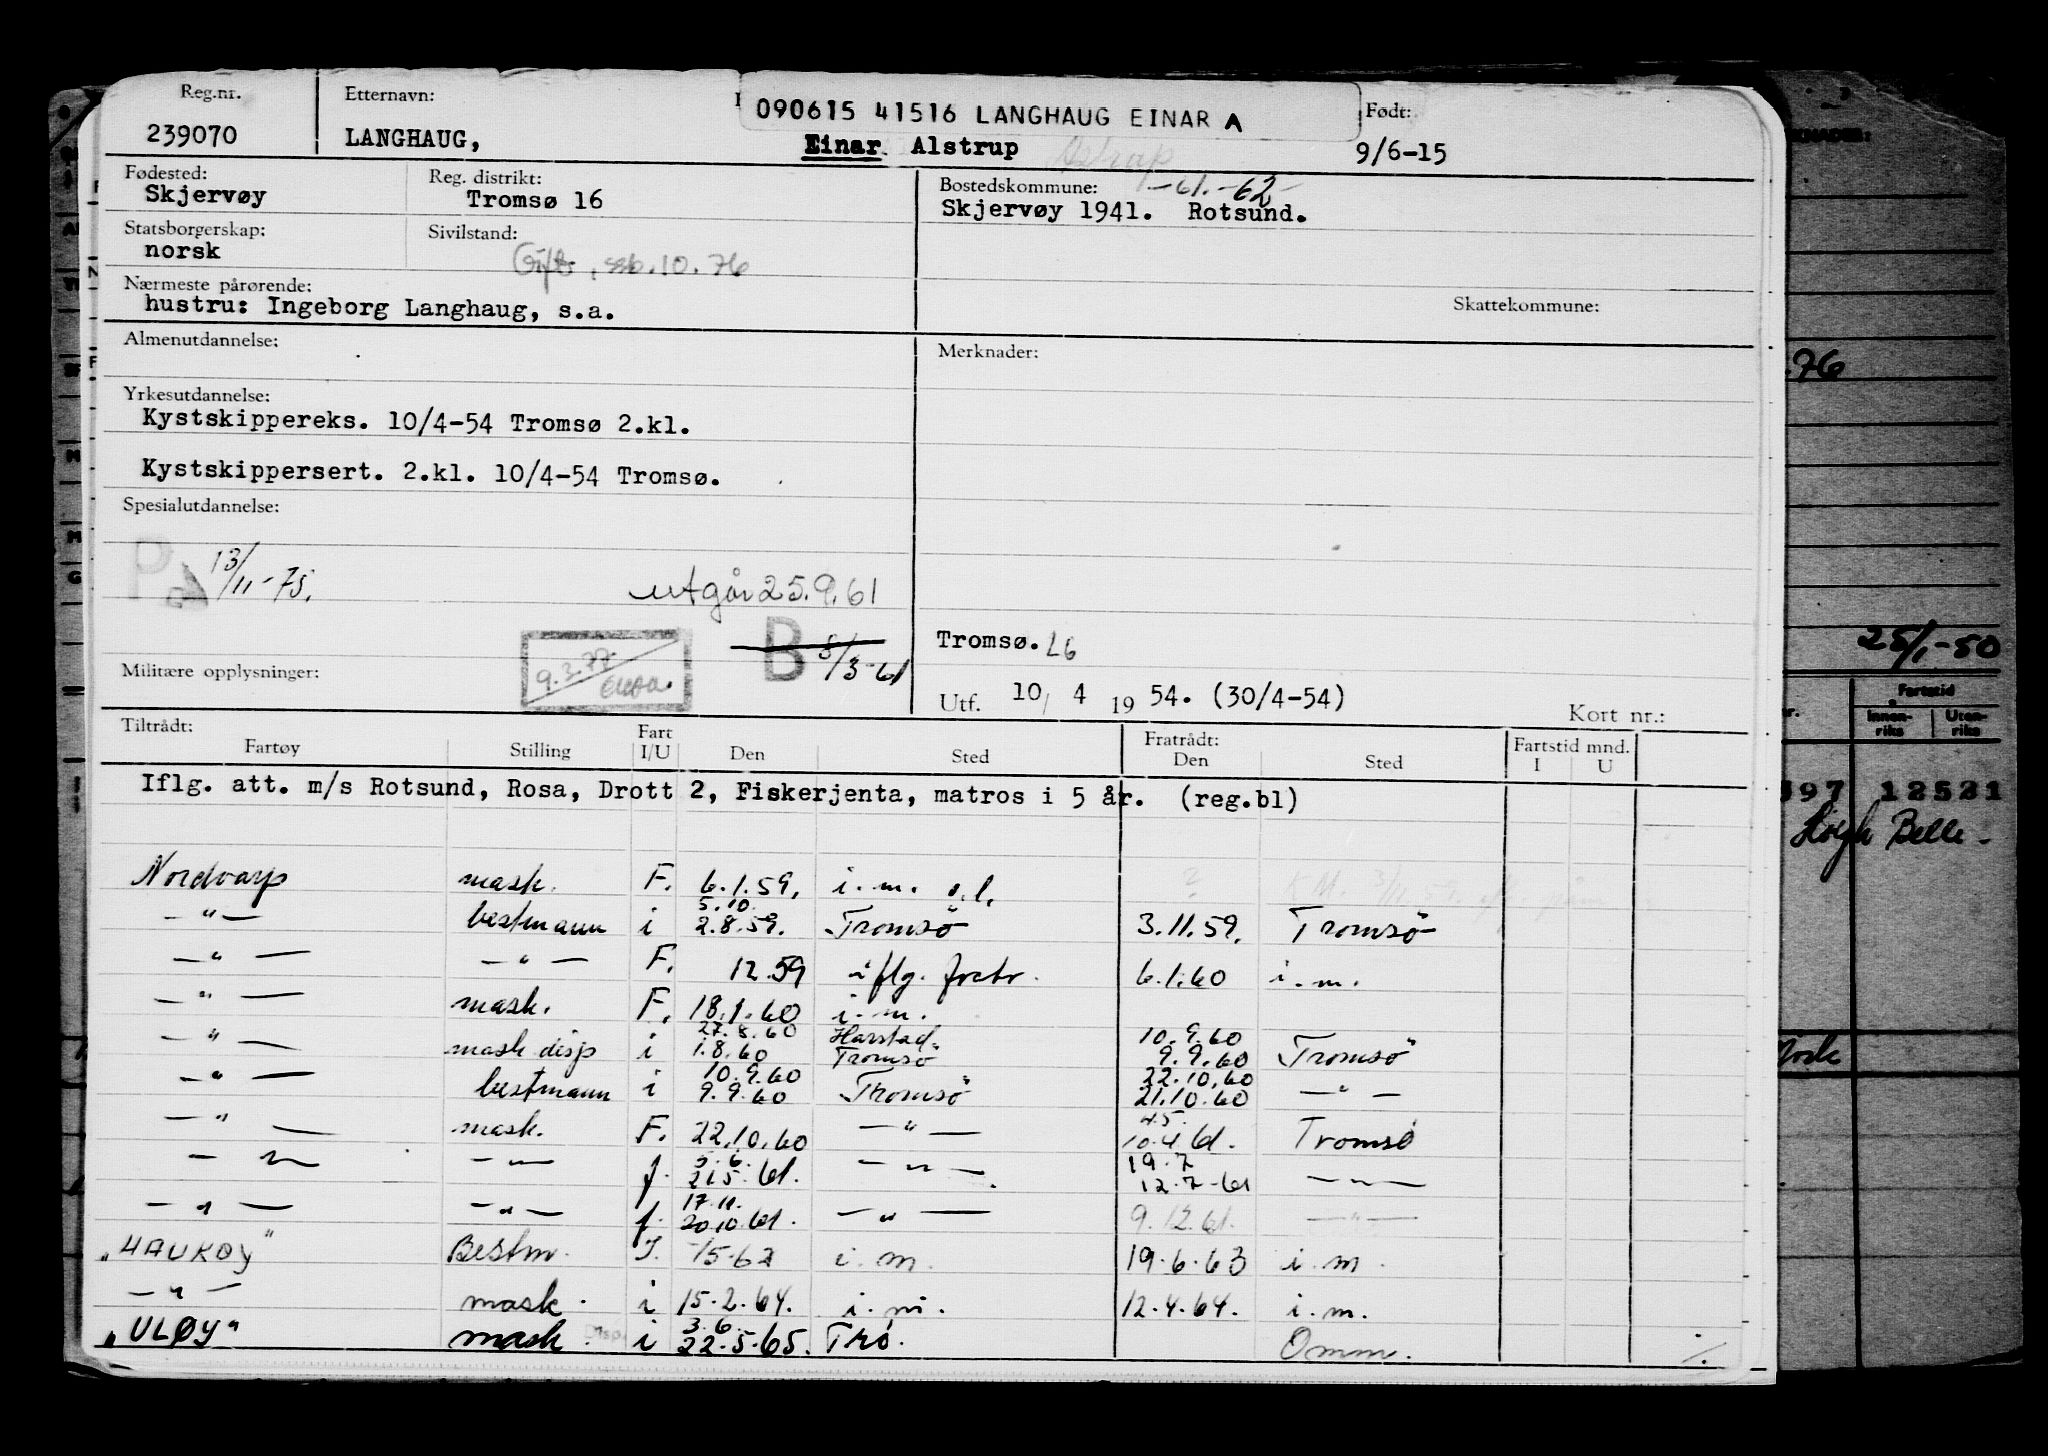 Reg.nr. Etternavn: 090615 41516 LANGHAUG EINAR A Født:
239070 LANGHAUG, Einar Alstrup 9/6-15
Fødested: Reg. distrikt: Bostedskommune: -61.-62-
Skjervøy Tromsø 16 Skjervøy 1941. Rotsund.
Statsborgerskap: Sivilstand:
norsk Gift, ssb.10.76
Nærmeste pårørende:
hustru: Ingeborg Langhaug, s.a. Skattekommune:
Almenutdannelse: Merknader:
Yrkesutdannelse:
Kystskippereks. 10/4-54 Tromsø 2.kl.
Kystskippersert. 2.kl. 10/4-54 Tromsø.
Spesialutdannelse:
P 13/11-75.
utgår 25.9.61
B 8/3-61 Tromsø. L6
Militære opplysninger: 9.3.77
Utf. 10/ 4 19 54. (30/4-54) Kort nr.:
Tiltrådt: Fratrådt:
Fartøy Stilling Fart I/U Den Sted Den Sted Fartstid mnd. I U
Iflg. att. m/s Rotsund, Rosa, Drott 2, Fiskerjenta, matros i 5 år. (reg.bl)
Nordvarp mask. F. 6.1.59. i.m. o.l. ?
5.10.
—"— bestmann i 2.8.59. Tromsö 3.11.59. Tromsö
—"— —"— F. 12.59 iflg. fratr. 6.1.60 i.m.
—"— mask. F. 18.1.60 i.m.
27.8.60 Harstad 10.9.60
—"— mask disp i 1.8.60 Tromsö 9.9.60 Tromsö
10.9.60 22.10.60
—"— bestmann i 9.9.60 Tromsö 21.10.60 —"—
4.5.
—"— mask. F. 22.10.60 —"— 10.4.61. Tromsö
5.6. 19.7
—"— —"— f. 21.5.61. —"— 12.7-61 —"—
17.11.
—"— —"— f. 20.10.61. —"— 9.12.61. —"—
"HAUKØY" Bestm. I. 15.62 i.m. 19.6.63 i.m.
—"— mask. i 15.2.64. i.m. 12.4.64. i.m.
3.6.
"ULØY" mask. Disp. i 22.5.65. Trö. Omm. ./.
76
25/1-50
Fartstid
Innen-riks Uten-riks
397 12521
Høegh Belle -